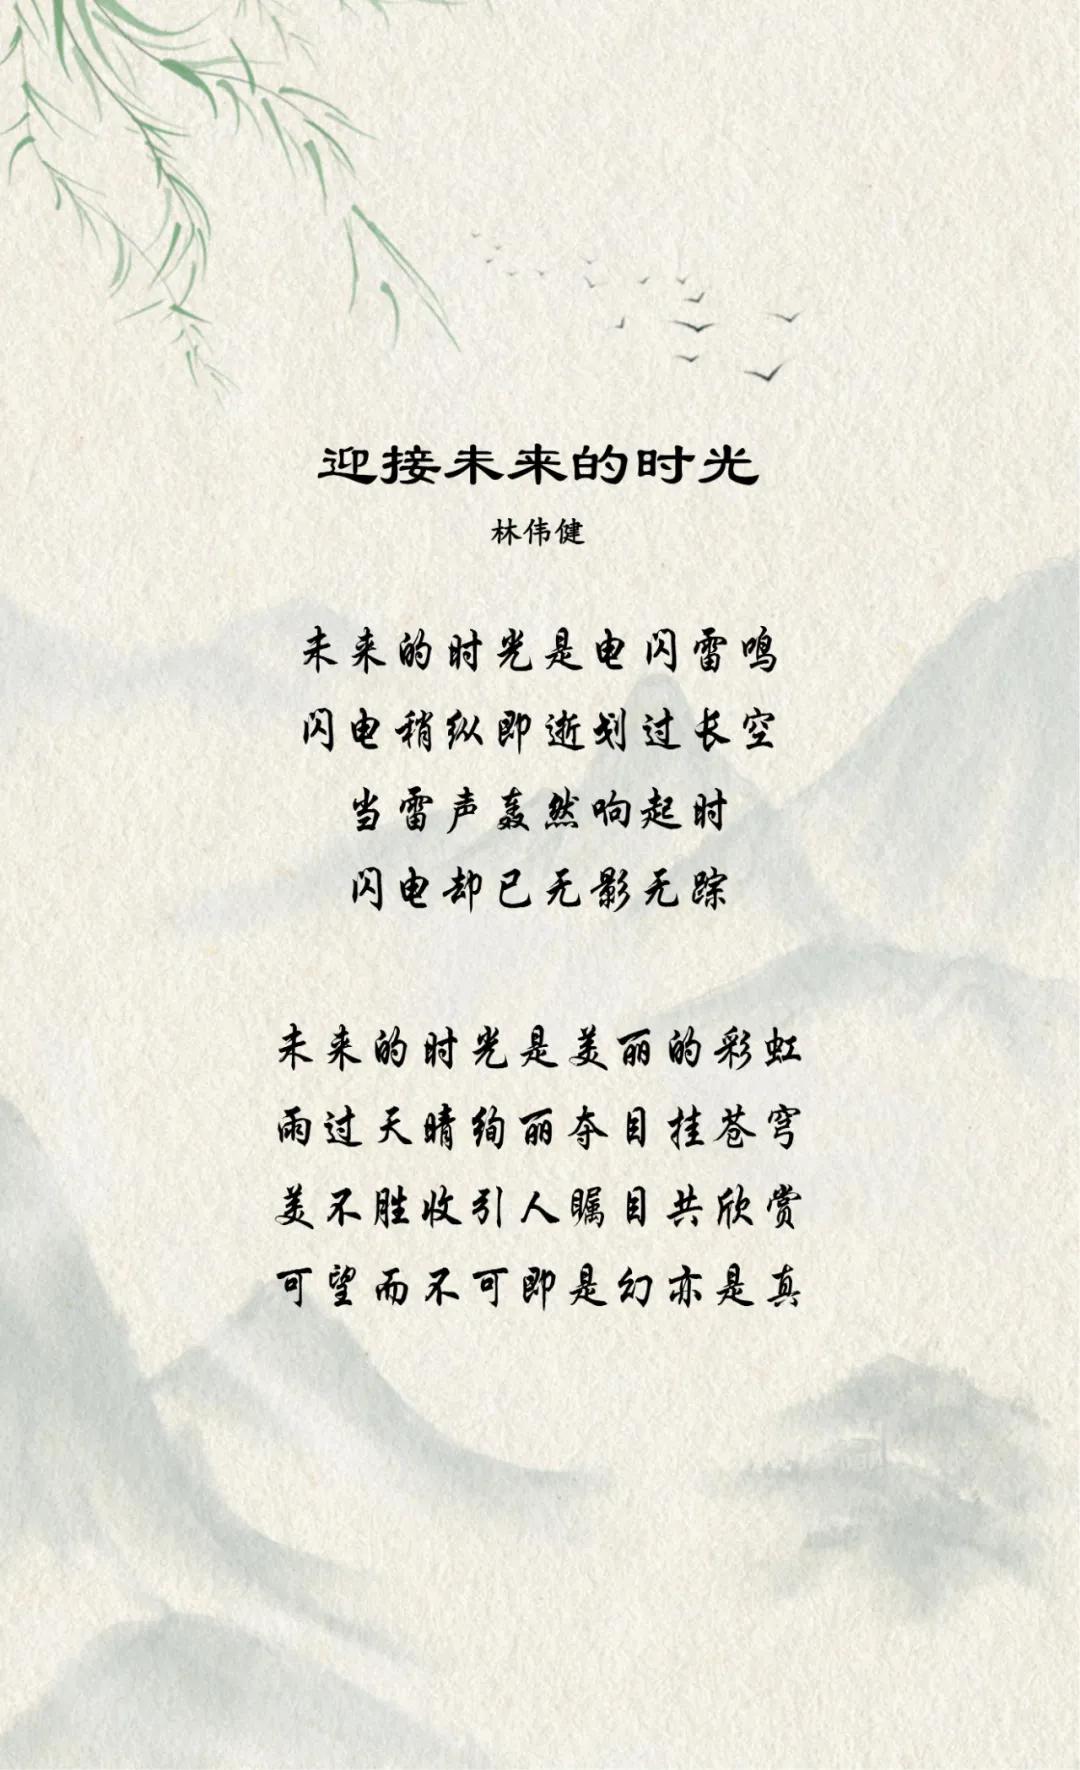 迎接未来的时光
林伟健
未来的时光是电闪雷鸣
闪电稍纵即逝划过长空
当雷声轰然响起时
闪电却已无影无踪
未来的时光是美丽的彩虹
雨过天晴绚丽夺目挂苍穹
美不胜收引人瞩目共欣赏
可望而不可即是幻亦是真